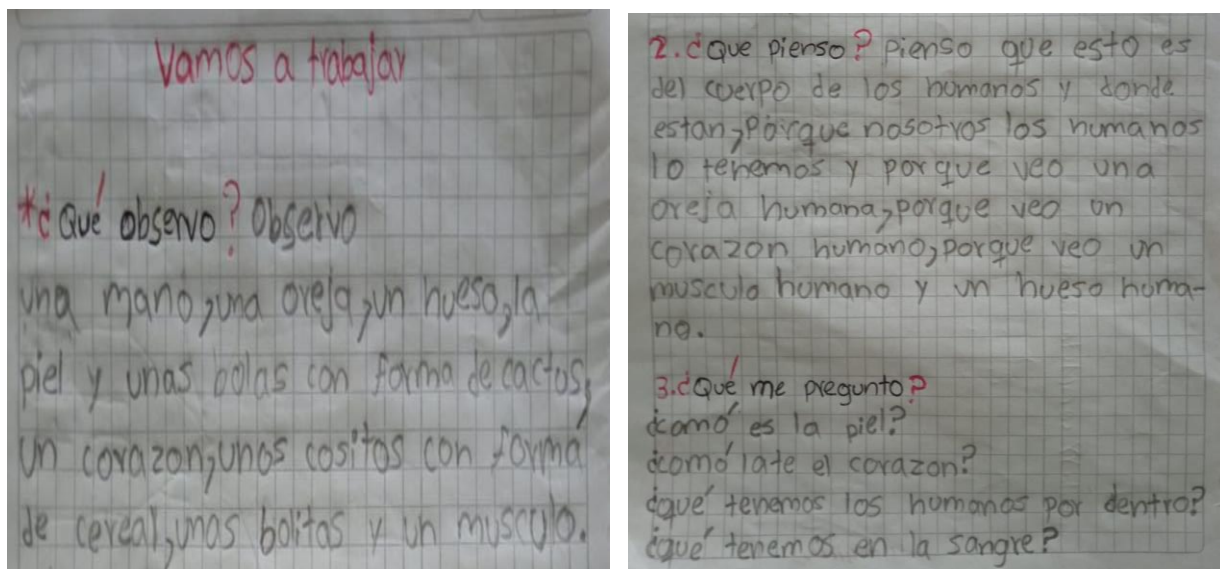 Vamos a trabajar
*¿Qué observo? Observo
una mano, una oreja, un hueso, la
piel y unas bolas con forma de cactos,
un corazon, unos cositos con forma
de cereal, unos bolitas y un musculo.
2. ¿Que pienso? pienso que esto es
del cuerpo de los humanos y donde
estan, porque nosotros los humanos
lo tenemos y porque veo una
oreja humana, porque veo un
corazon humano, porque veo un
musculo humano y un hueso huma-
no.
3. ¿Qué me pregunto?
¿comó es la piel?
¿comó late el corazon?
¿qué tenemos los humanos por dentro?
¿qué tenemos en la sangre?